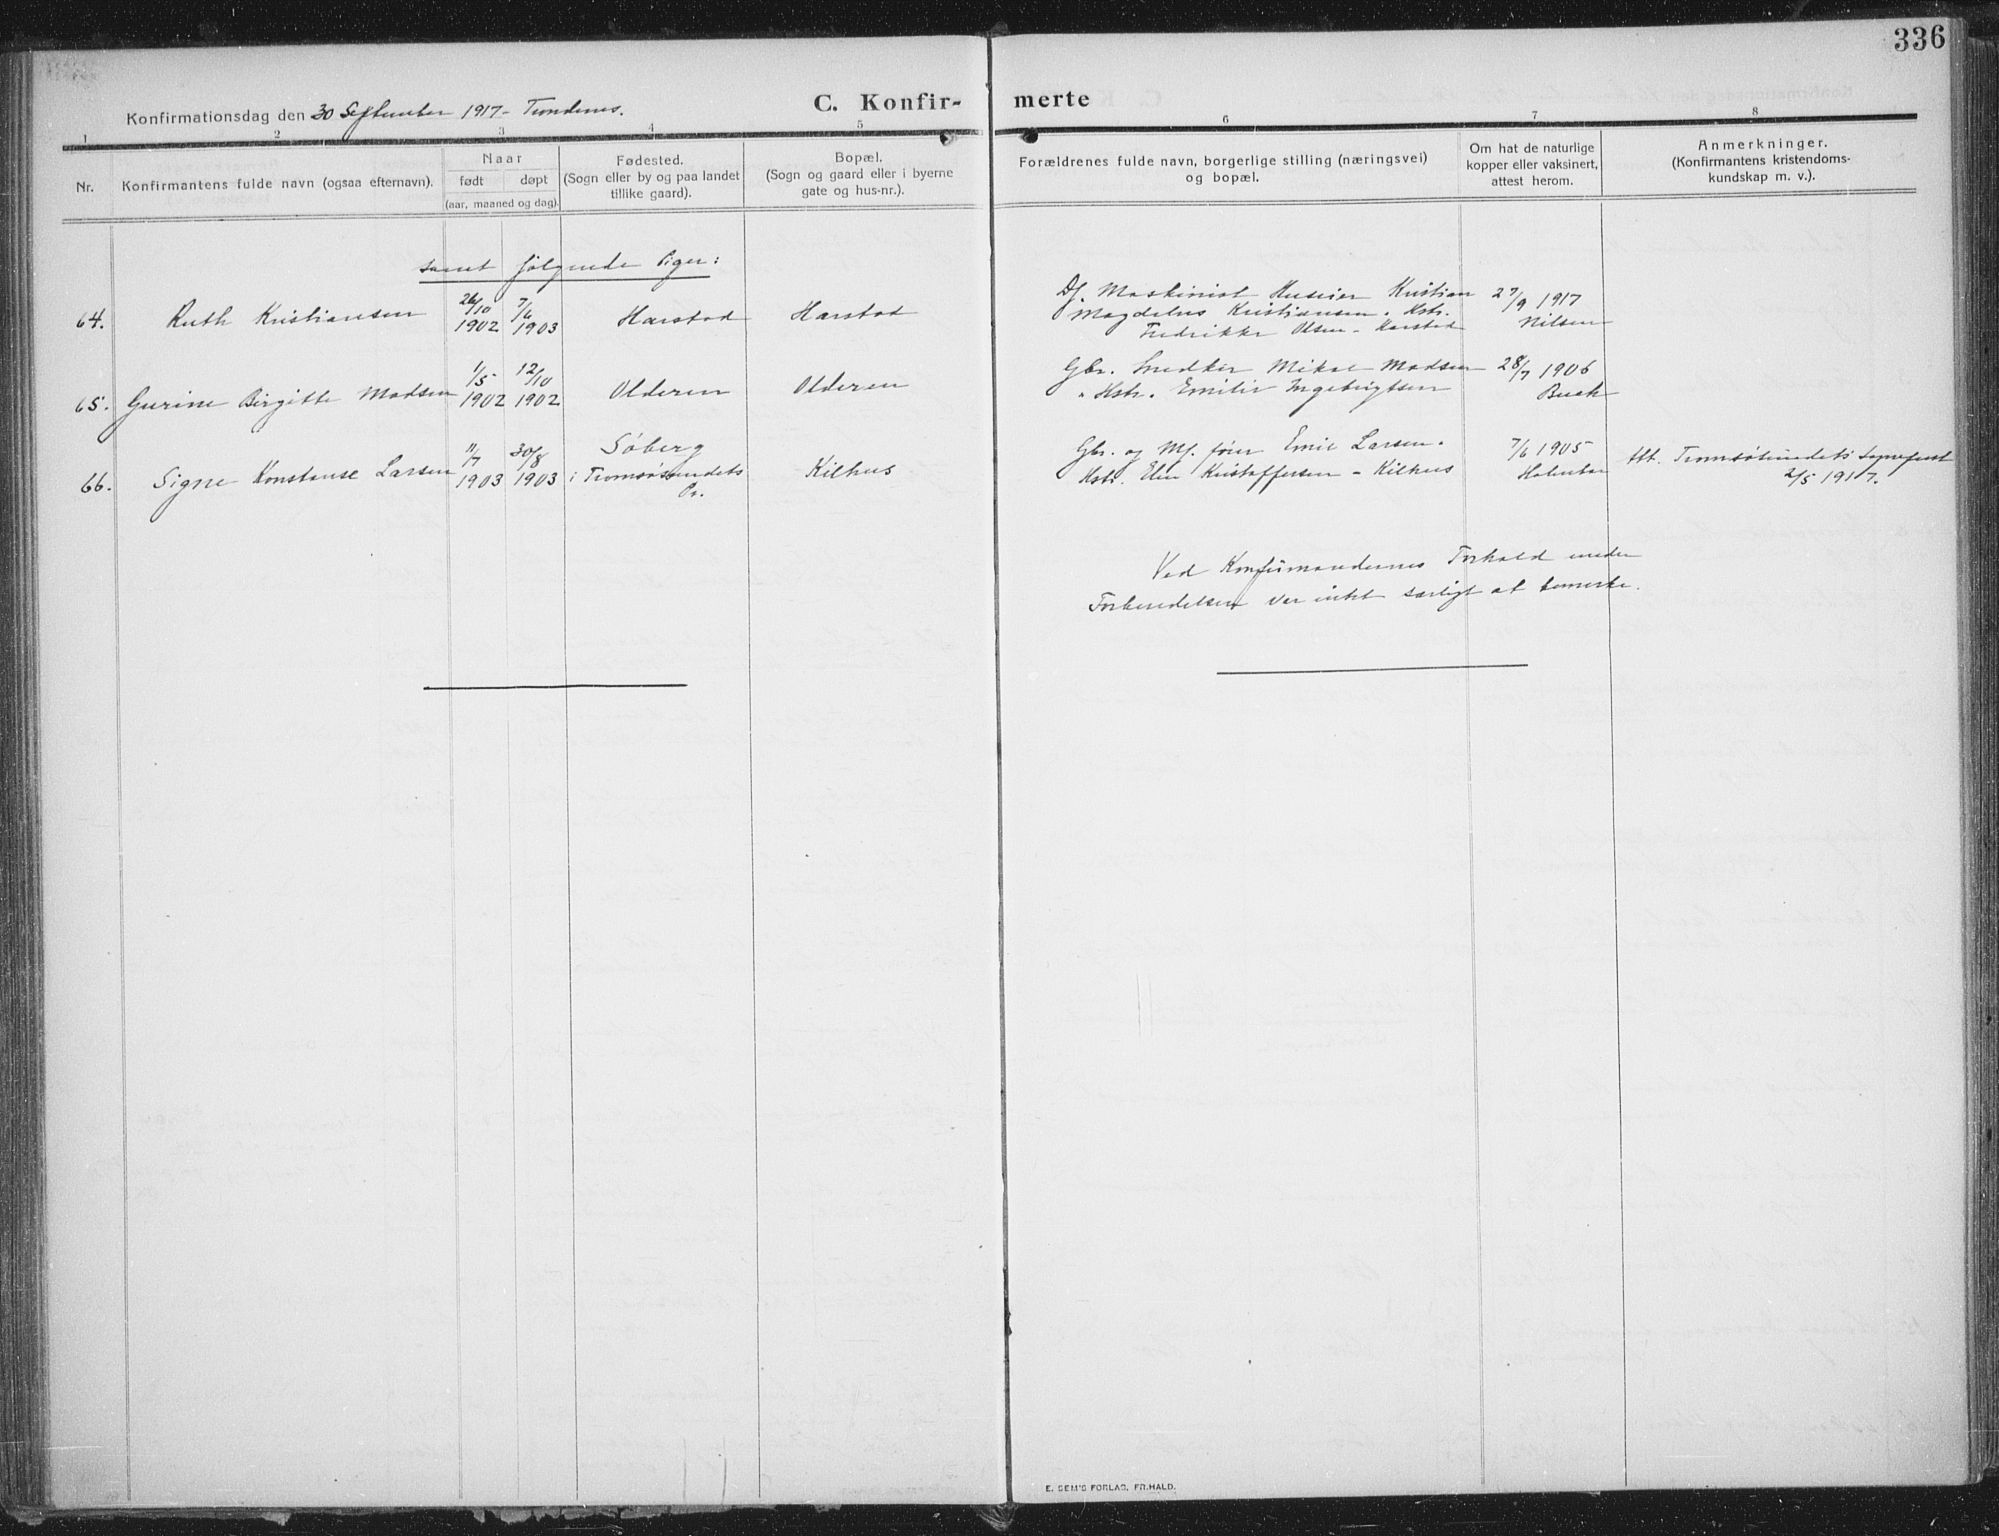 336
Konfirmationsdag den 30 September 1917 - Trondenes.
C. Konfir- merte
1 2 3 4 5 6 7 8
Nr.
Konfirmantens fulde navn (ogsaa efternavn).
Naar
født døpt
(aar, maaned og dag).
Fødested.
(Sogn eller by og paa landet
tillike gaard).
Bopæl.
(Sogn og gaard eller i byerne
gate og hus-nr.).
Forældrenes fulde navn, borgerlige stilling (næringsvei)
og bopæl.
Om hat de naturlige
kopper eller vaksinert,
attest herom.
Anmerkninger.
(Konfirmantens kristendoms-
kundskap m. v.).
samt følgende Piger:
64. Ruth Kristiansen 26/10 1902 7/6 1903 Harstad Harstad
Df. Maskinist Huseier Kristian
Magdelus Kristiansen. Hstr.
Fredrikke Olsen - Harstad
27/9 1917
Nilsen
65. Gurine Birgitte Madsen 1/5 1902 12/10 1902 Olderen Olderen
Gbr. Snedker Mikal Madsen
" Hstr. Emilie Ingebrigtsen
28/7 1906
Buch
66. Signe Konstanse Larsen 11/7 1903 30/8 1903
Søberg
i Tromsøsundets
Pr.
Kilhus
Gbr. og Mf. fører Emil Larsen.
Hstr. Elen Kristoffersen - Kilhus
7/6 1905
Att. Tromsøsundets Sogneprest
2/5 1917.
Ved Konfirmandernes Forhold under
Forberedelsen var intet særligt at bemerke.
E. SEM'S FORLAG, FR.HALD.